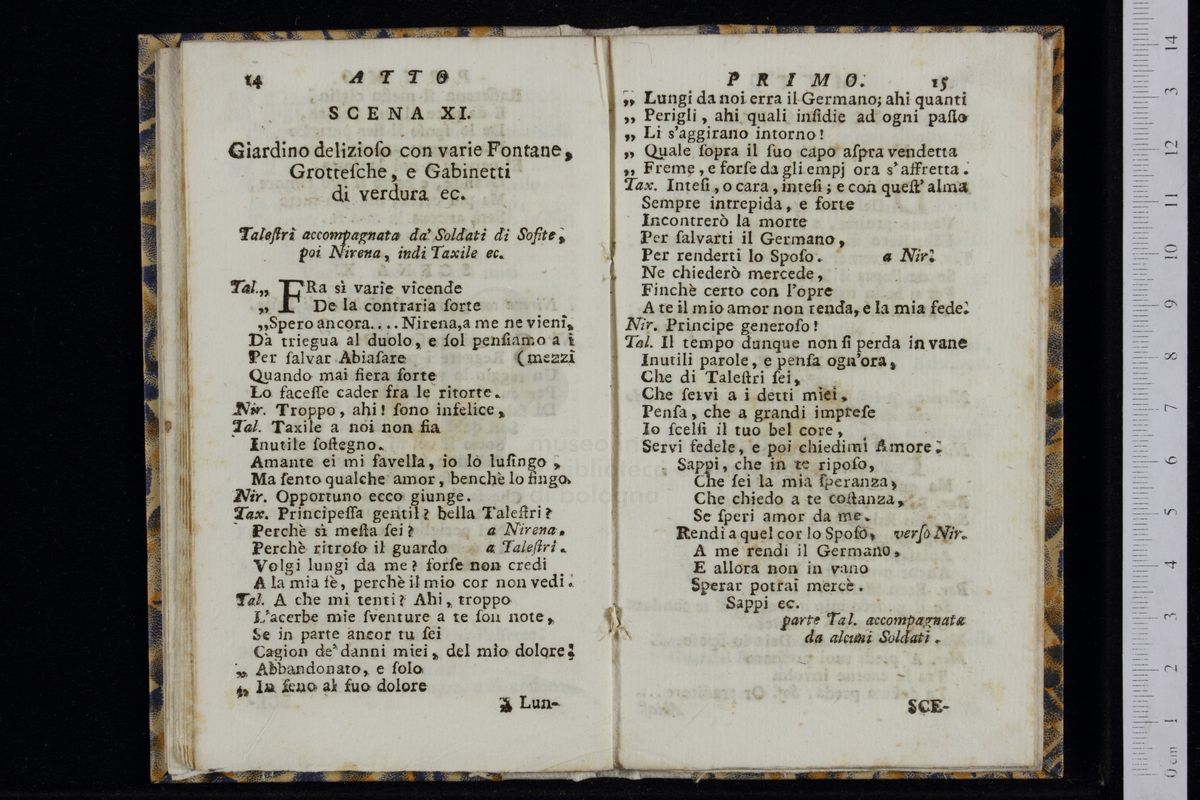 14 ATTO
SCENA XI.
Giardino delizioſo con varie Fontane,
Grotteſche, e Gabinetti
di verdura ec.
Taleſtri accompagnata da' Soldati di Soſite,
poi Nirena, indi Taxile ec.
Tal.„ FRa sì varie vicende
„ De la contraria ſorte
„Spero ancora.... Nirena, a me ne vieni,
Dà triegua al duolo, e ſol penſiamo a i
Per ſalvar Abiaſare (mezzi
Quando mai fiera ſorte
Lo faceſſe cader fra le ritorte.
Nir. Troppo, ahi! ſono infelice,
Tal. Taxile a noi non fia
Inutile ſoſtegno.
Amante ei mi favella, io lo luſingo,
Ma ſento qualche amor, benchè lo fingo.
Nir. Opportuno ecco giunge.
Tax. Principeſſa gentil? bella Taleſtri?
Perchè sì meſta ſei? a Nirena.
Perchè ritroſo il guardo a Taleſtri.
Volgi lungi da me? forſe non credi
A la mia fè, perchè il mio cor non vedi.
Tal. A che mi tenti? Ahi, troppo
L'acerbe mie ſventure a te ſon note,
Se in parte ancor tu ſei
Cagion de' danni miei, del mio dolore!
„ Abbandonato, e ſolo
„ In ſeno al ſuo dolore
„ Lun-
PRIMO. 15
„ Lungi da noi erra il Germano; ahi quanti
„ Perigli, ahi quali inſidie ad ogni paſſo
„ Li s'aggirano intorno!
„ Quale ſopra il ſuo capo aſpra vendetta
„ Freme, e forſe da gli empj ora s'affretta.
Tax. Inteſi, o cara, inteſi; e con queſt' alma
Sempre intrepida, e forte
Incontrerò la morte
Per ſalvarti il Germano,
Per renderti lo Spoſo. a Nir.
Ne chiederò mercede,
Finchè certo con l'opre
A te il mio amor non renda, e la mia fede.
Nir. Principe generoſo!
Tal. Il tempo dunque non ſi perda in vane
Inutili parole, e penſa ogn'ora,
Che di Taleſtri ſei,
Che ſervi a i detti miei,
Penſa, che a grandi impreſe
Io ſcelſi il tuo bel core,
Servi fedele, e poi chiedimi Amore.
Sappi, che in te ripoſo,
Che ſei la mia ſperanza,
Che chiedo a te coſtanza,
Se ſperi amor da me.
Rendi a quel cor lo Spoſo, verſo Nir.
A me rendi il Germano,
E allora non in vano
Sperar potrai mercè.
Sappi ec.
parte Tal. accompagnata
da alcuni Soldati.
SCE-